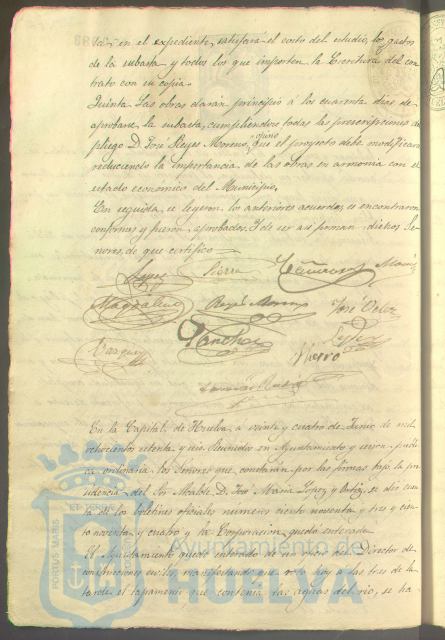 ta en el expediente, satisfará el costo del estudio, los gastos
de la subasta y todos los que importen la Escritura del con
trato con su copia.
Quinta. Las obras darán principio á los cuarenta dias de
aprobarse la subasta, cumpliendose todas las prescripciones del
pliego D. José Reyes Moreno, opinó que el proyecto debe modificarse
reduciendo la importancia de las obras en armonia con el
estado economico del Municipio.
En seguida se leyeron los anteriores acuerdos, se encontraron
conformes y fueron aprobados. Y de ser asi firman dichos Se
ñores, de que certifico
Lopez Sierra
Magdaleno Reyes Moreno José
Vazquez Sanchez
En la Capital de Huelva, a veinte y cuatro de Junio de mil
ochocientos setenta y seis. Reunidos en Ayuntamiento y sesion publi
ca ordinaria los Señores que constarán por las firmas bajo la pre
sidencia del Sor Alcalde D. José Maria Lopez y Ortiz, se dió cuen
ta de los boletines oficiales numeros ciento noventa y tres y cien
to noventa y cuatro y la Corporacion quedó enterada.
El Ayuntamiento quedó enterado de un oficio del Director de
manifestando que hoy a las tres de la
tarde el tapamento que contenia las aguas del rio, se ha
PORTUS MARIS ET TERRAE
Ayuntamiento de
HUELVA